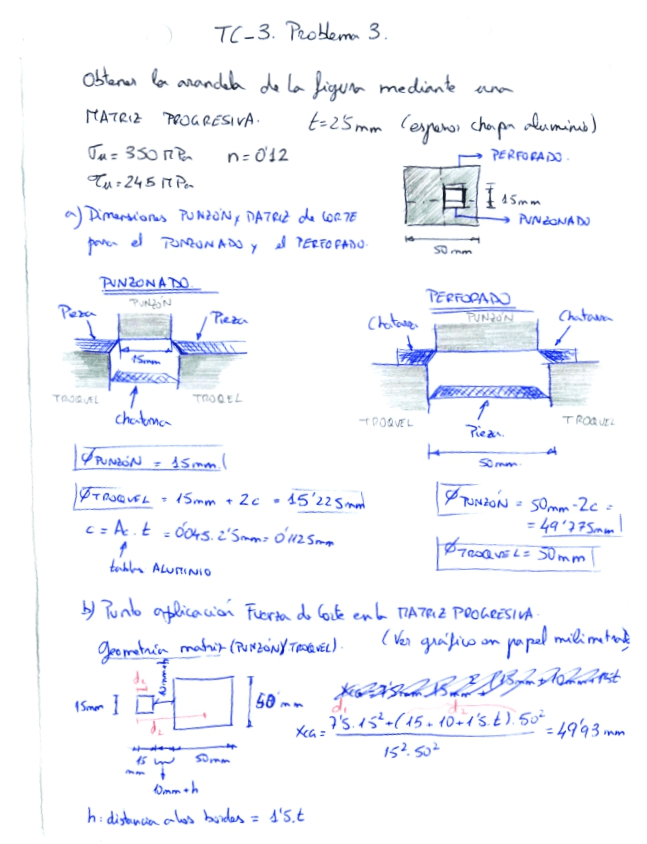 TC-3. Problema 3.
Obtener la arandela de la figura mediante una
MATRIZ PROGRESIVA. t=2'5mm (espesor chapa aluminio)
σu = 350 MPa n = 0'12
τu = 245 MPa
PERFORADO.
15mm
PUNZONADO
50mm
a) Dimensiones PUNZÓN y MATRIZ de CORTE
para el PUNZONADO y el PERFORADO.
PUNZONADO.
PUNZÓN
Pieza
Pieza
15mm
TROQUEL
TROQUEL
chatarra
PERFORADO
PUNZÓN
Chatarra
Chatarra
TROQUEL
TROQUEL
Pieza.
50mm.
ØPUNZÓN = 15mm.
ØTROQUEL = 15mm + 2c = 15'225mm
c = Ac. t = 0'045. 2'5mm = 0'1125mm
tablas ALUMINIO
ØPUNZÓN = 50mm - 2c =
= 49'775mm
ØTROQUEL = 50mm
b) Punto aplicación Fuerza de Corte en la MATRIZ PROGRESIVA.
(Ver gráfico en papel milimetrado)
Geometría matriz (PUNZÓN/TROQUEL).
d1
15mm
50 mm
d2
15
mm
50mm
10mm+h
d1
d2
XCG = 7'5. 15² + (15 + 10 + 1'5. t). 50² / 15². 50² = 49'93 mm
h: distancia a los bordes = 1'5. t